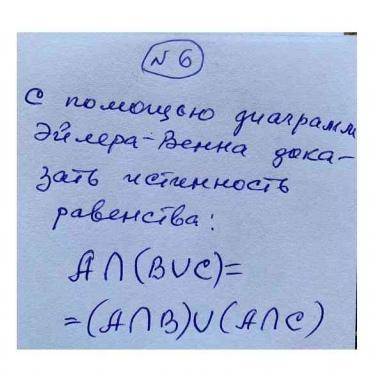 № 6
С помощью диаграмм
Эйлера-Венна дока-
зать истинность
равенства:
A∩(B∪C)=
=(A∩B)∪(A∩C)